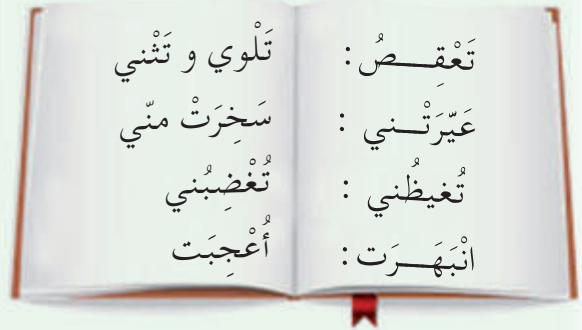 تَعْقِـــصُ : تَلْوي و تَثْني
عَيّرَتْـــني : سَخِرَتْ منّي
تُغيظُني : تُغْضِبُني
انْبَهَـــرَت : أُعْجِبَت